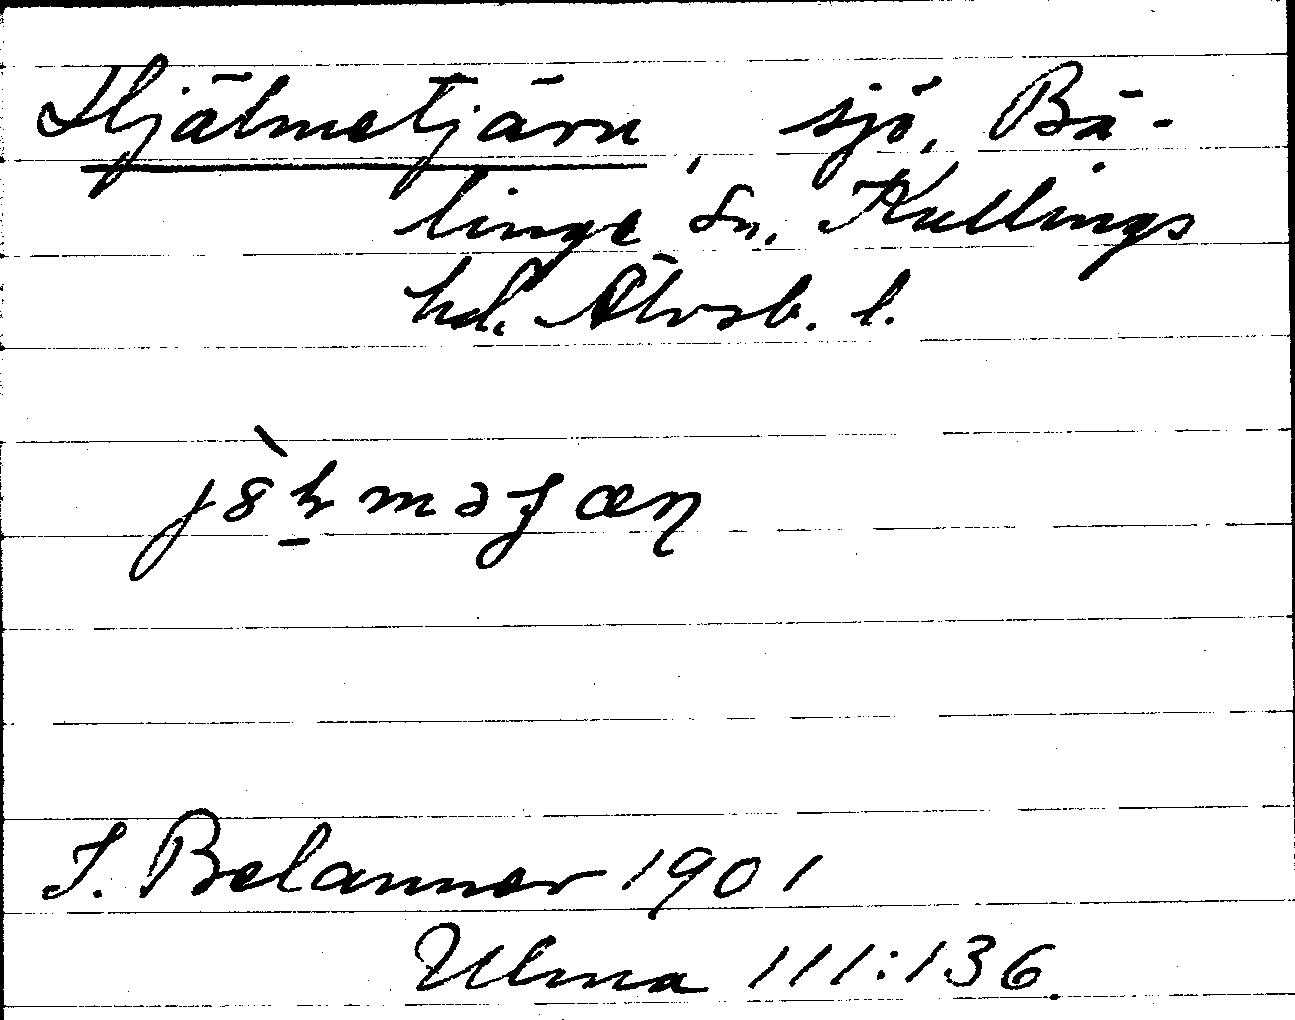 Hjälmetjärn, sjö, Bä-
linge sn, Kullings
hd. Älvsb. l.
J. Belanner 1901
Ulma 111:136.